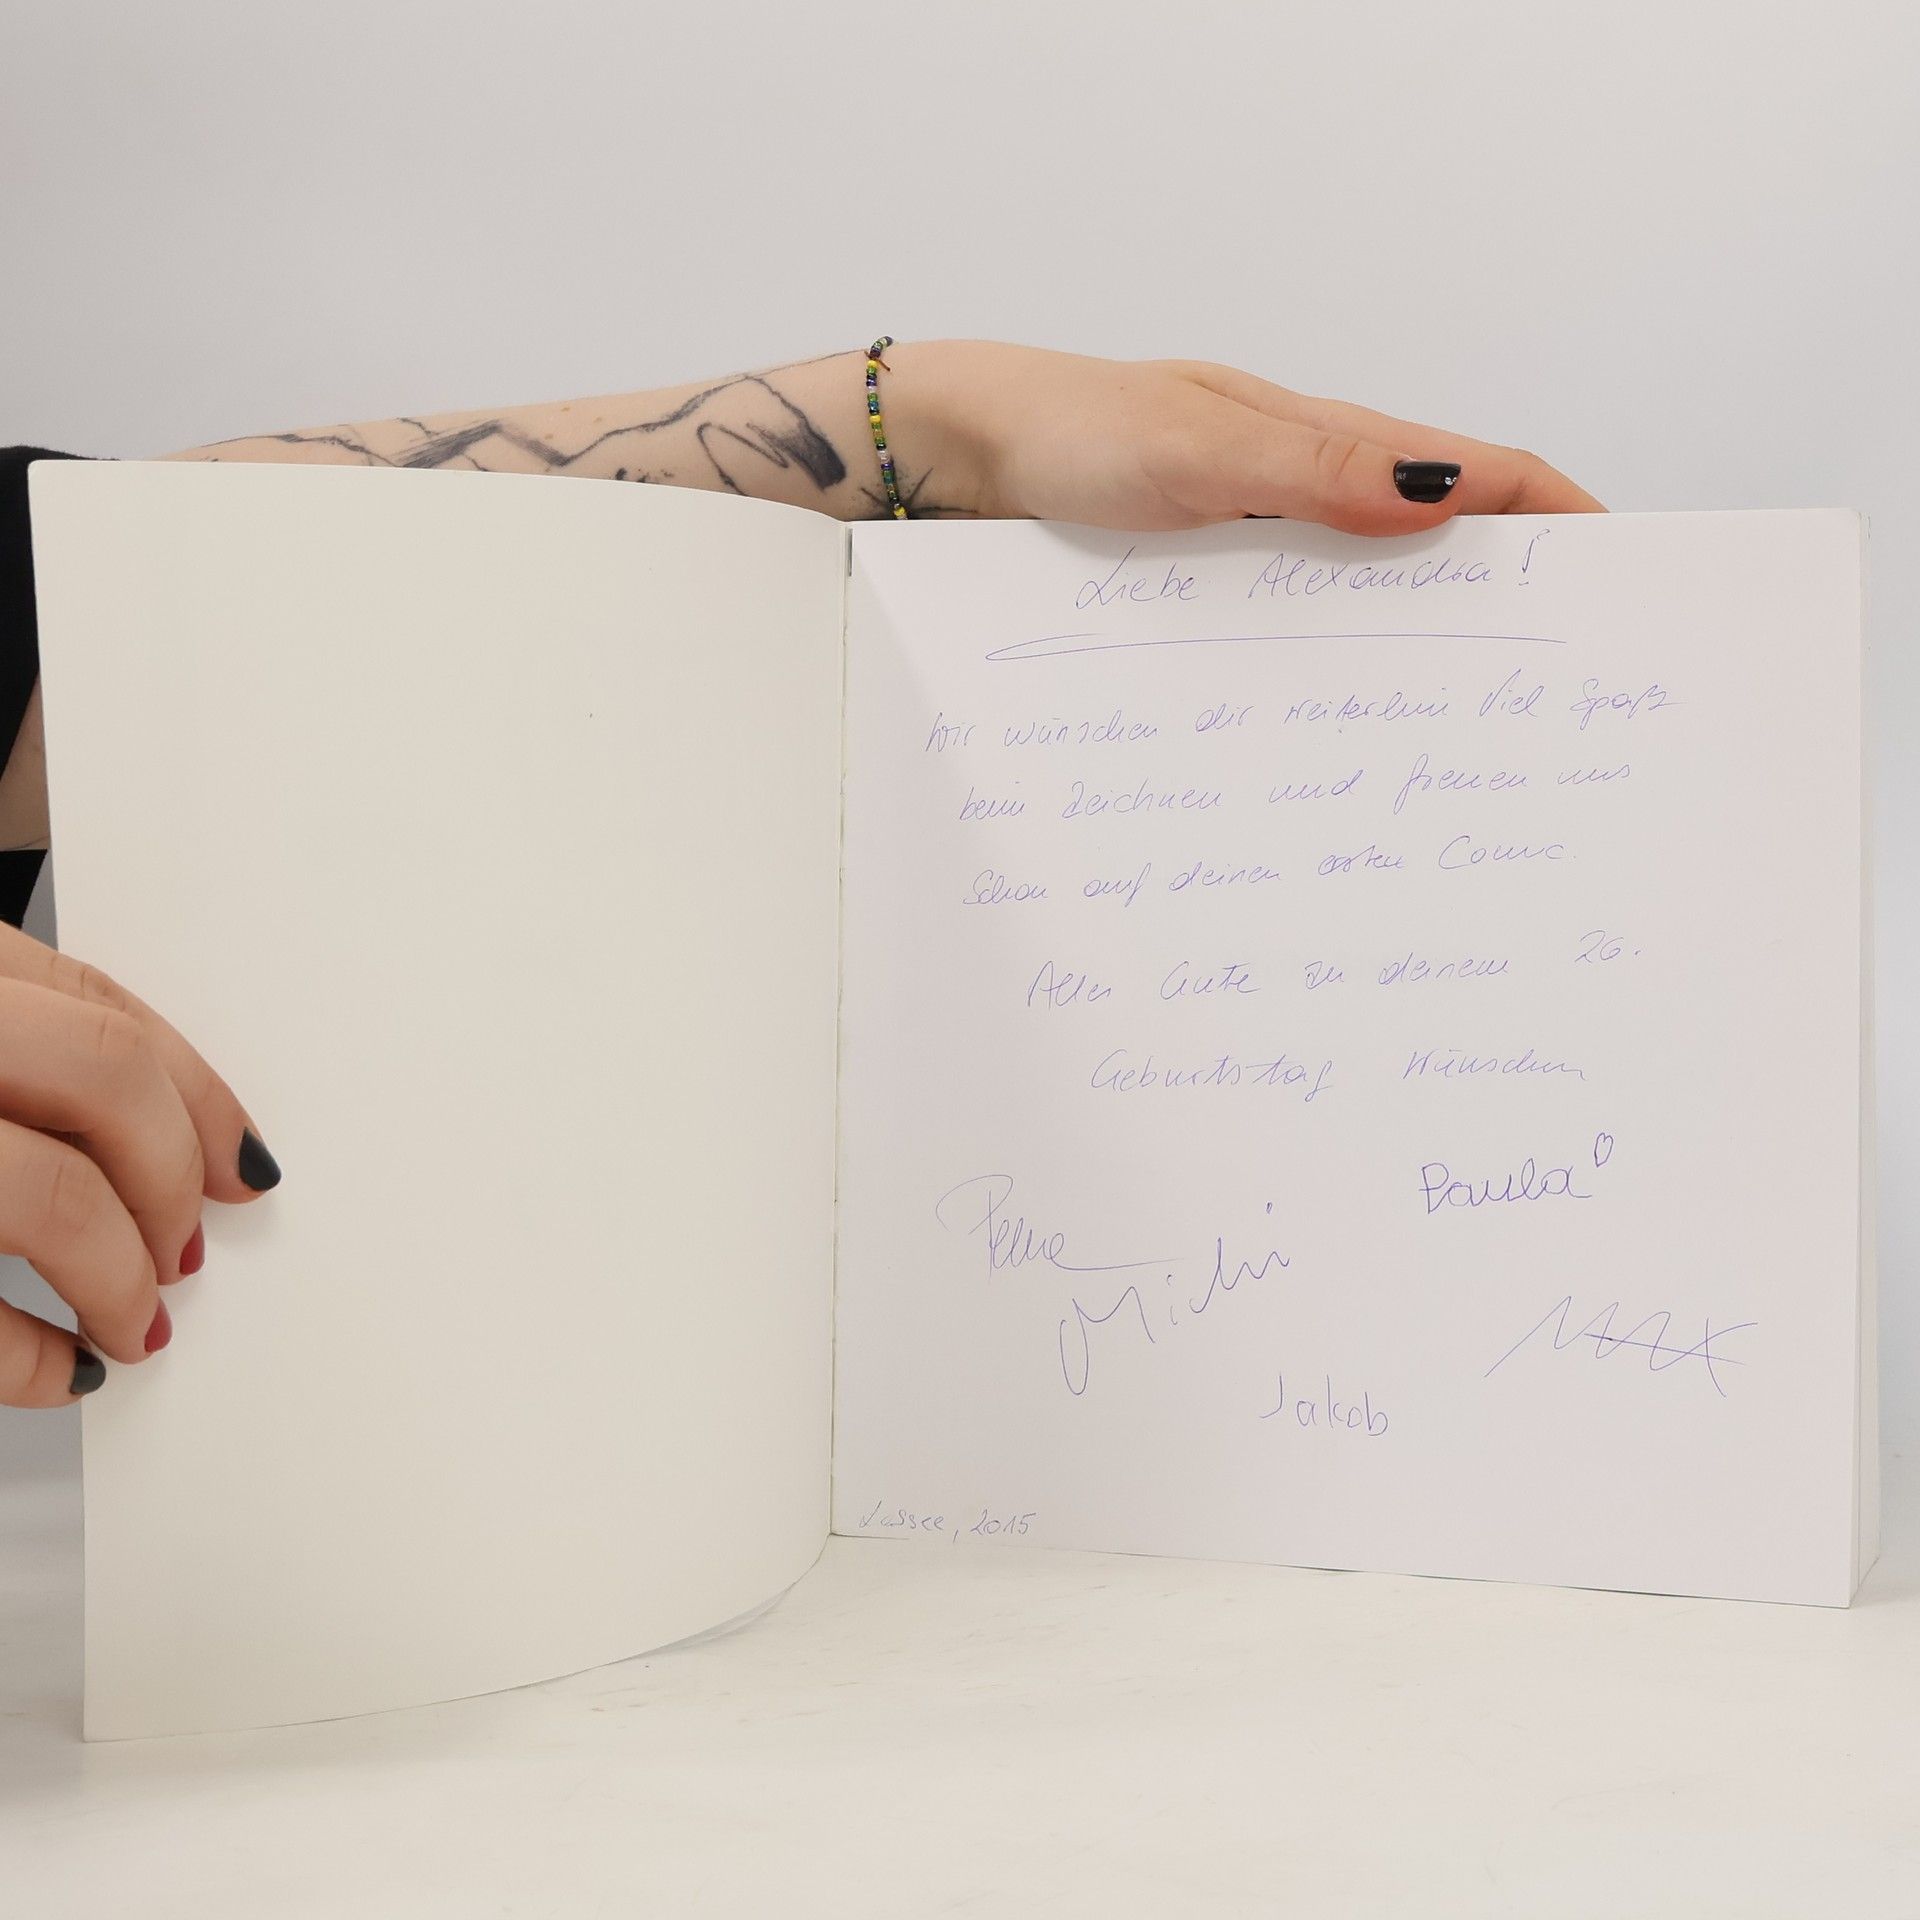 Liebe Alexandra!
Wir wünschen dir weiterhin Viel Spaß
beim Zeichnen und freuen uns
Schon auf deinen ersten Comic.
Alles Gute zu deinem 26.
Geburtstag wünschen
Paula
Michi
Jakob
Lassee, 2015